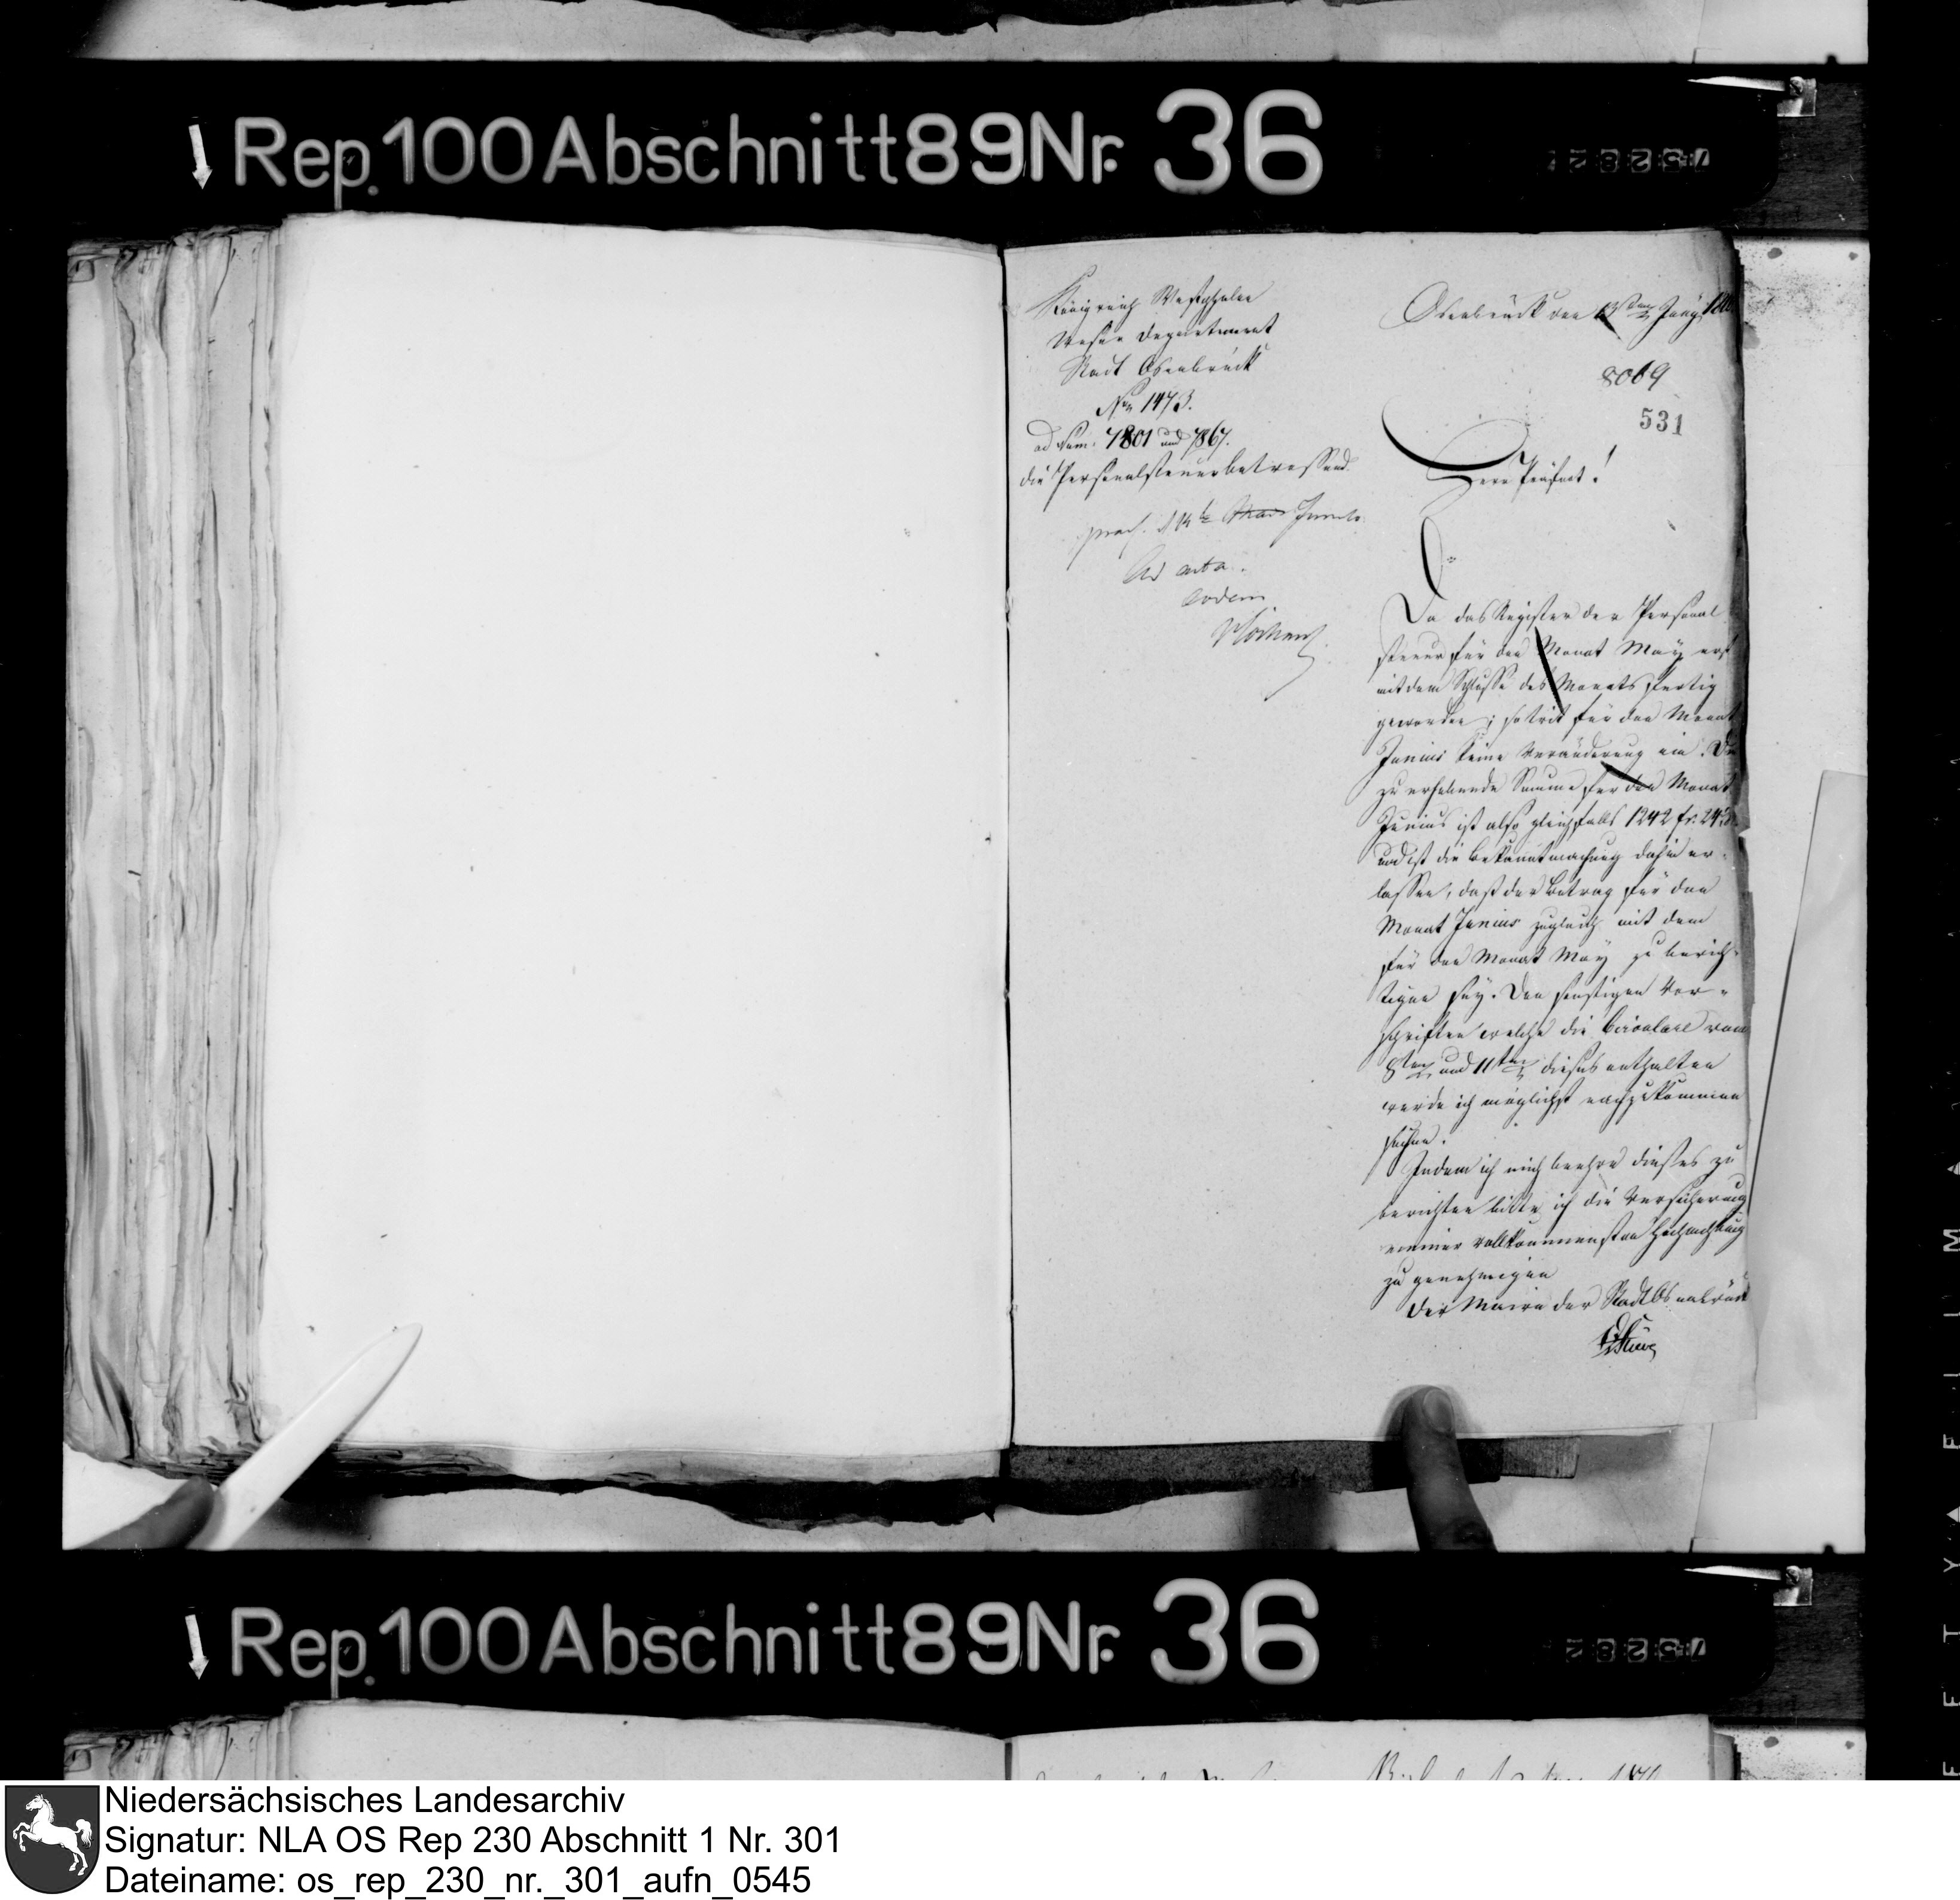 Rep. 100 Abschnitt 89 Nr. 36
Königreich Westphalen
Weser Departement
Stadt Osnabrück
Nro 1473.
ad Num. 7801 und 7867.
die Personalsteuer betreffend.
praes. d 14t Junii
Ad acta.
eodem
Osnabrück den 13ten Juny
8069
531
Herr Präfect!
Da das Register der Personal
steuer für den Monat May erst
mit dem Schlusse des Monats fertig
geworden; so trit für den Monat
Junius keine Veränderung ein. Die
zu erhebende Summe für den Monat
Junius ist also gleichfalls 1242 fr. 24
und ist die Bekanntmachung dahin er-
lassen, daß der Betrag für den
Monat Junius zugleich mit dem
für den Monat May zu berich-
tigen sey. Den sonstigen Vor-
schriften welche die Circulare vom
8ten und 11ten dieses enthalten
werde ich möglichst nachzukommen
suchen.
Indem ich mich beehre dieses zu
berichten bitte ich die Versicherung
meiner vollkommensten Hochachtung
zu genehmigen
Der Maire der Stadt Osnabrück
Stüve
Rep. 100 Abschnitt 89 Nr. 36
Niedersächsisches Landesarchiv
Signatur: NLA OS Rep 230 Abschnitt 1 Nr. 301
Dateiname: os_rep_230_nr._301_aufn_0545